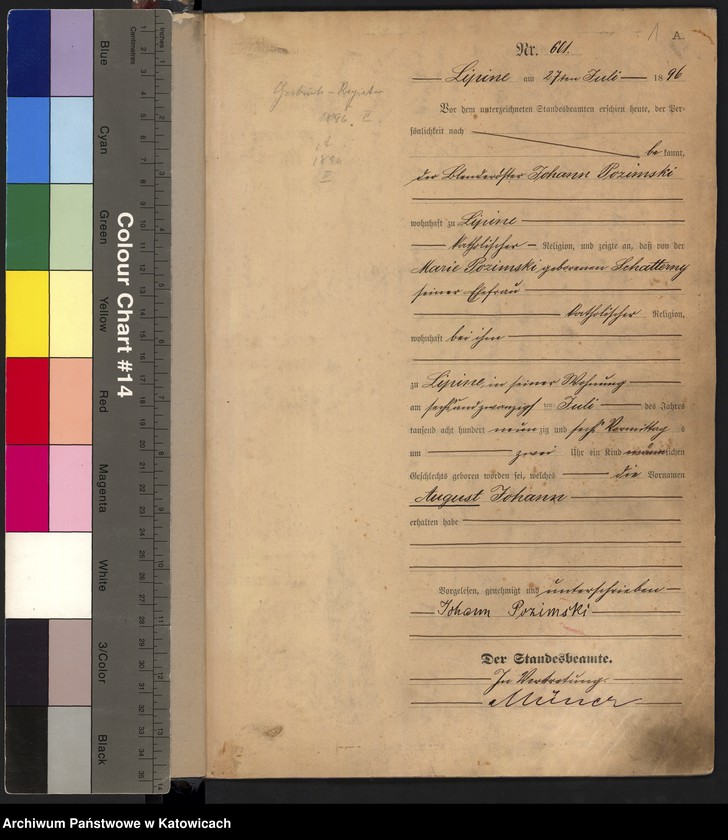 Blue
Cyan
Green
Yellow
Red
Magenta
White
3/Color
Black
Colour Chart #14
Centimetres
Inches
A.
Nr. 601.
Lipine am 27ten Juli 1896
Vor dem unterzeichneten Standesbeamten erschien heute, der Per-
sönlichkeit nach
bekannt,
der Blenderöster Johann Pozimski
wohnhaft zu Lipine
katholischer Religion, und zeigte an, daß von der
Marie Pozimski geborenen Schattemy
seiner Ehefrau
katholischer Religion,
wohnhaft bei ihm
zu Lipine, in seiner Wohnung
am sechsundzwanzigsten Juli des Jahres
tausend acht hundert neunzig und sechs Vormittags
um zwei Uhr ein Kind männlichen
Geschlechts geboren worden sei, welches die Vornamen
August Johann
erhalten habe
Vorgelesen, genehmigt und unterschrieben
Johann Pozimski
Der Standesbeamte.
In Vertretung.
Geburts-Register
1896. II.
1896
II
Archiwum Państwowe w Katowicach